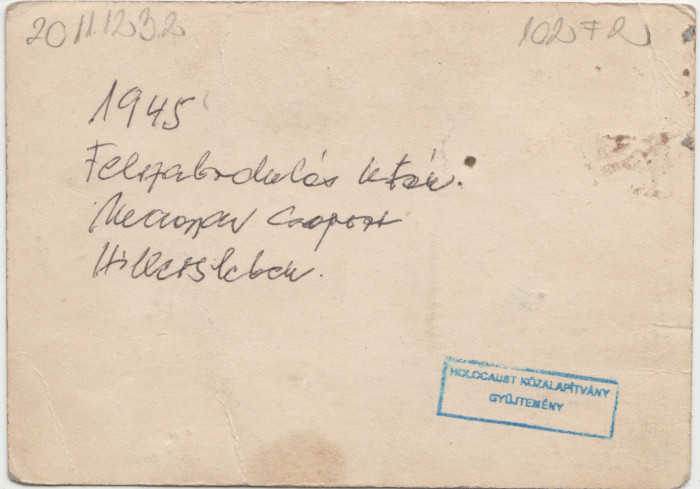 2011.1253.2
102 F 2
1945
Felszabadulás után.
Magyar csoport
Hillersleben.
HOLOCAUST KÖZALAPÍTVÁNY
GYŰJTEMÉNY